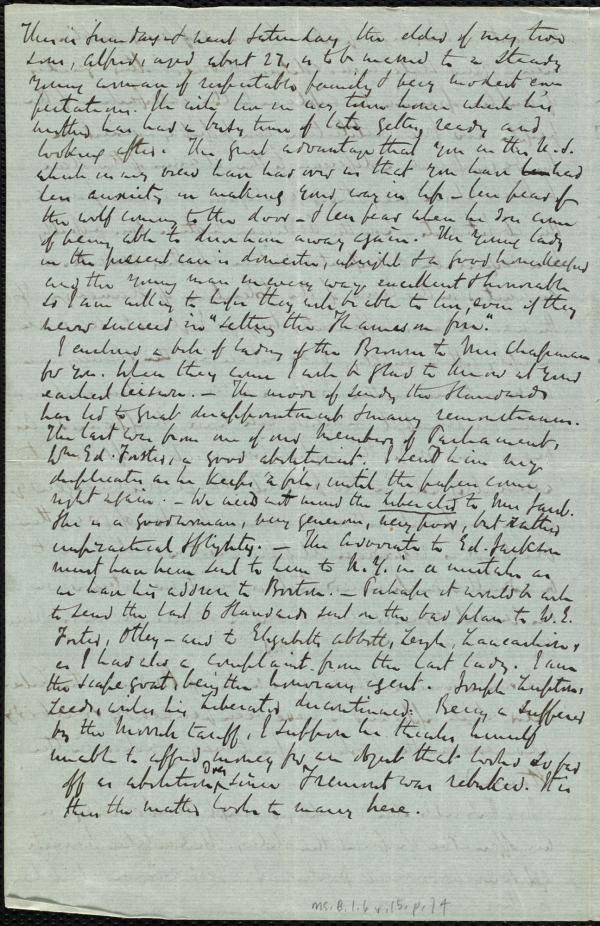 This is Sunday & next Saturday the elder of my two
sons, Alfred, aged about 27, is to be married to a steady
young woman of respectable family & very modest ex-
pectations. He will live in my town house which his
mother has had a busy time of late getting ready and
looking after. The great advantage that you in the U.S.
which in my view have had over us that you have had
less anxiety in making your way in life – less fear of
the wolf coming to the door – & less fear when he does come
of being able to drive him away again. The young lady
in the present case is domestic, upright & a good housekeeper
and the young man in every way excellent & honorable
so I am willing to hope they will be able to live, even if they
never succeed in "setting the Thames on fire."
I enclosed a bill of lading of the Browns to Mrs Chapman
for you. When they come I will be glad to know at your
earliest leisure. – The mode of sending the Standards
has led to great disappointment & many remonstrances.
The last was from one of our Members of Parliament,
Wm Ed. Forster, a good abolitionist. I sent him my
duplicates as he keeps a file, until the papers come
right again. – We need not mind the Liberator to Mrs
She is a good woman, very generous, very poor, but rather
unpractical & flighty. – The Advocate to Ed. Jackson
must have been sent to him to N.Y. in a mistake as
we have his address to Boston. – Perhaps it would be well
to send the last 6 Standards sent on the bad plan to W. E.
Forster, Otley – and to Elizabeth Abbott, Leigh, Lancashire,
as I had also a complaint from the last lady. I am
the scape goat, being the honorary agent. Joseph Lupton,
Leeds, wishes his Liberator discontinued. Being a sufferer
by the Morrill tariff, I suppose he thinks himself
unable to afford money for an object that looks so far
off as abolition does since Fremont was rebuked. It is
thus the matter looks to many here.
Ms. B. 1. 6 v. 15, p. 74